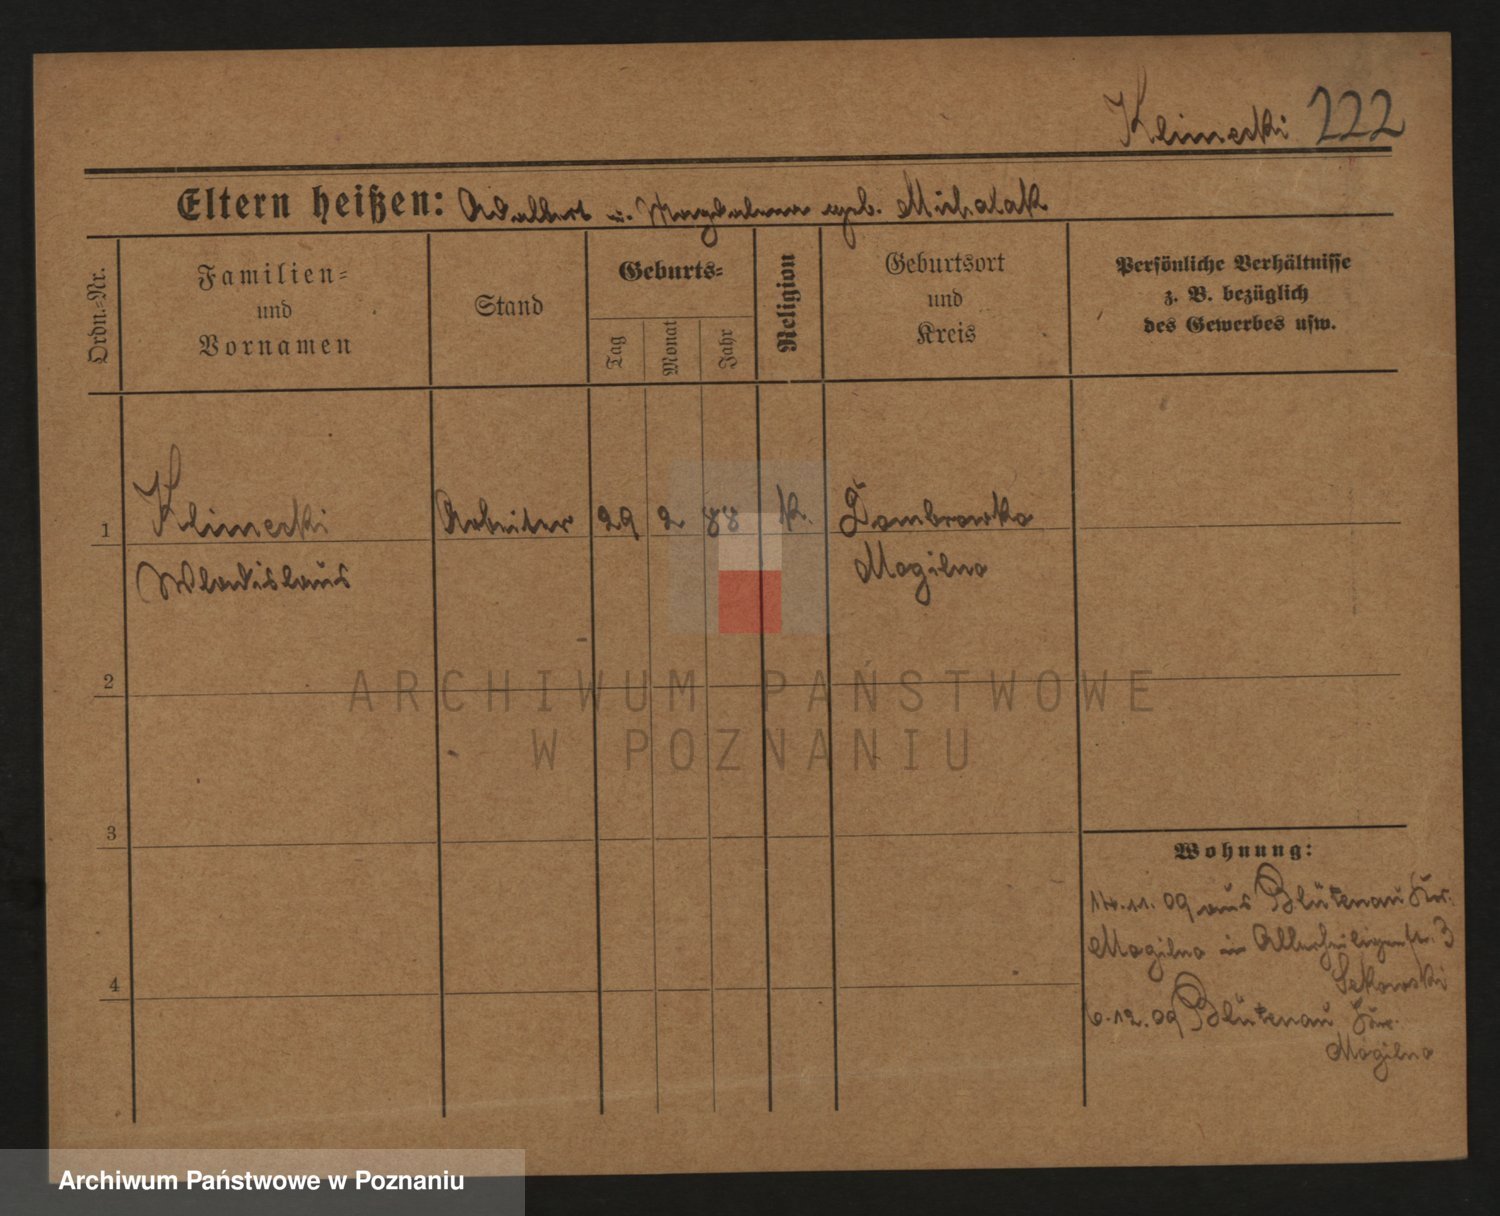 Klinecki 222
Eltern heißen: Adalbert u. Magdalena geb. Michalak
Ordn.-Nr.
Familien- und Vornamen
Stand
Geburts-
Tag
Monat
Jahr
Religion
Geburtsort und Kreis
Persönliche Verhältnisse z. B. bezüglich des Gewerbes usw.
1 Klinecki Arbeiter 29 2 88 K. Dombrowka
Wladislaus Mogilno
2
3
4
Wohnung:
14.11.09 aus Blütenau Kr.
Mogilno in Allerheiligenstr. 3
6.12.09 Blütenau Kr.
Mogilno
ARCHIWUM PAŃSTWOWE
W POZNANIU
Archiwum Państwowe w Poznaniu